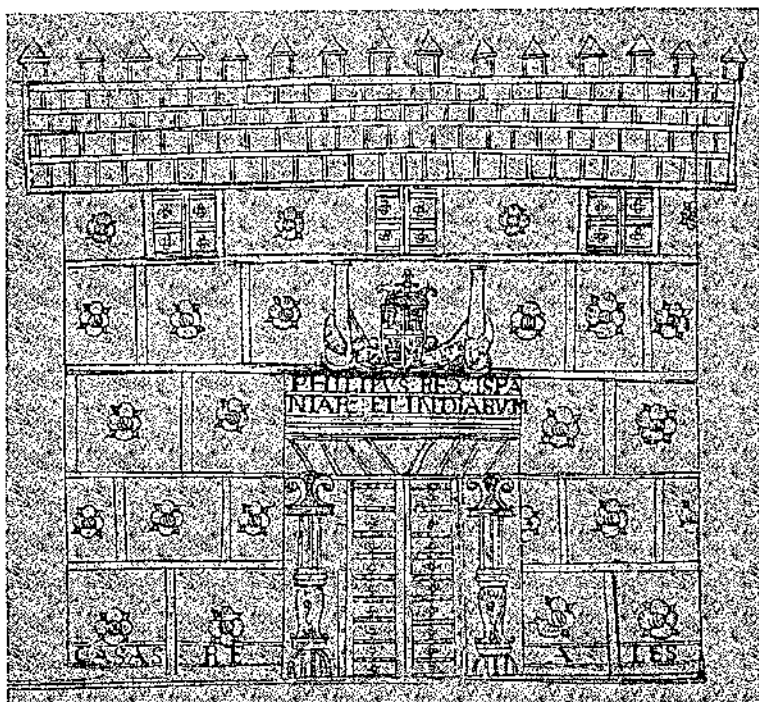 PHILIPVS·REX·ISPA
NIAR· ET INDIARVM
CASAS RE A LES